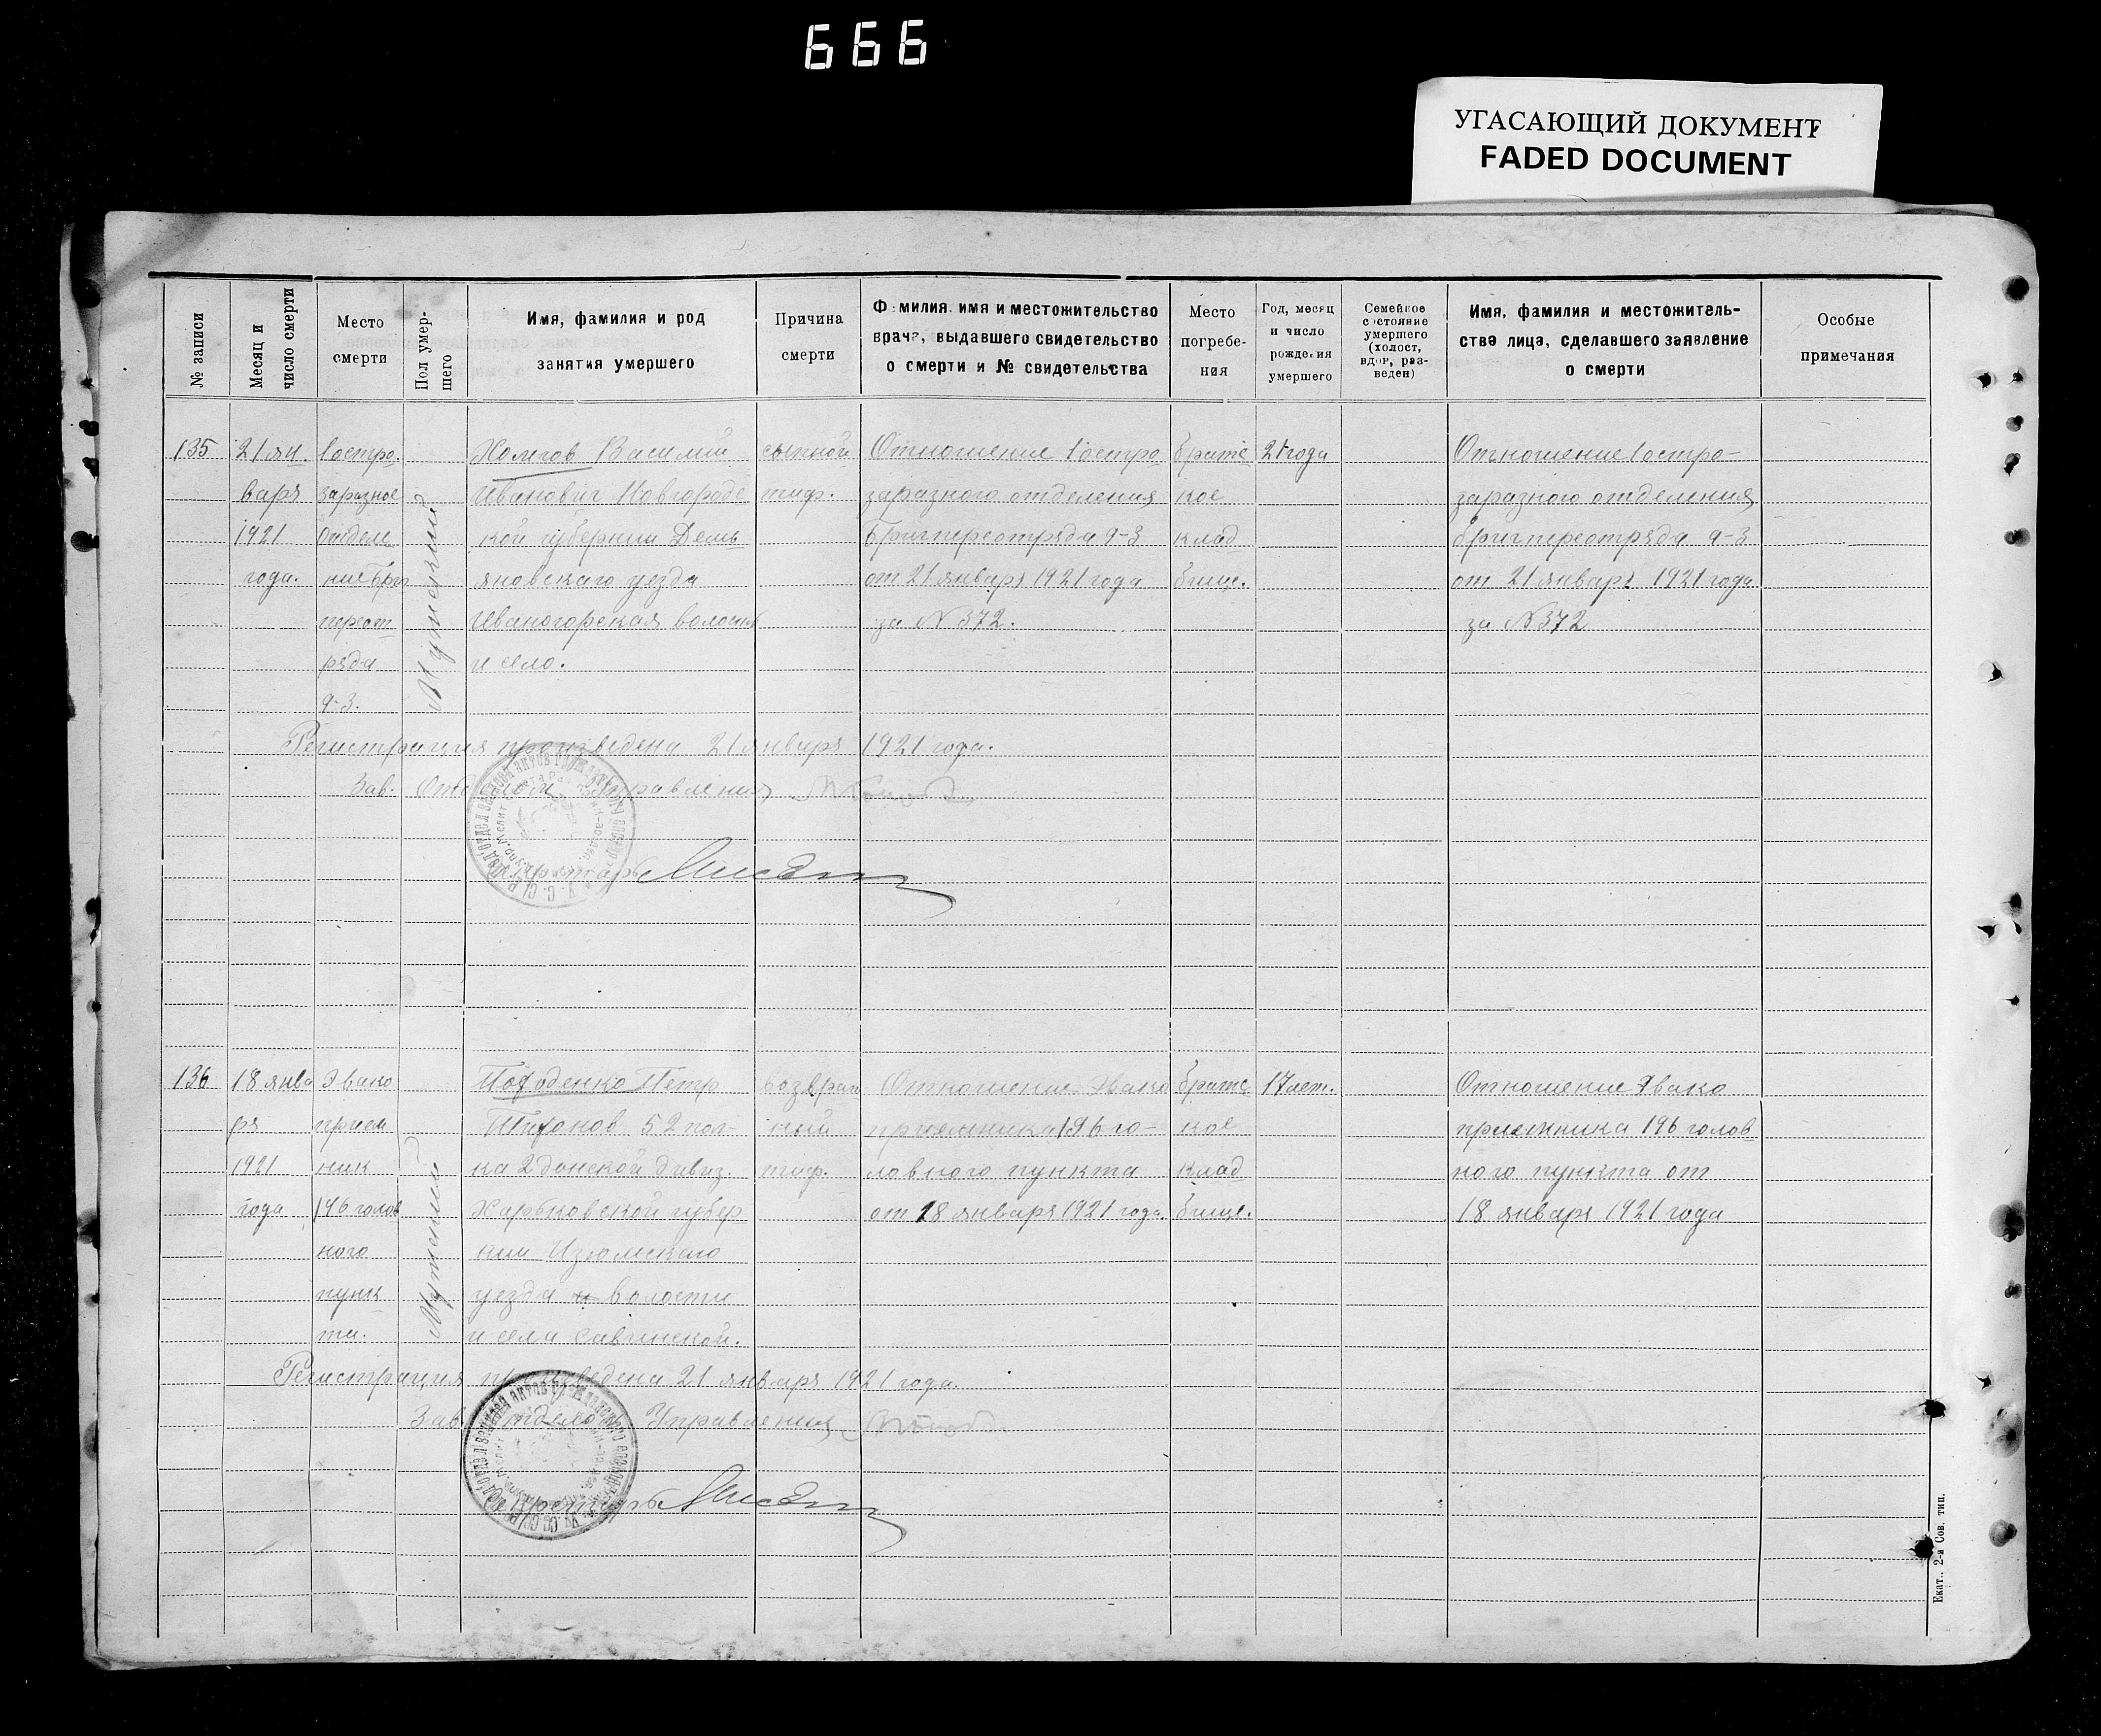 666
УГАСАЮЩИЙ ДОКУМЕНТ
FADED DOCUMENT
№ записи
Месяц и
число смерти
Место
смерти
Пол умер-
шего
Имя, фамилия и род
занятия умершего
Причина
смерти
Фамилия, имя и местожительство
врача, выдавшего свидетельство
о смерти и № свидетельства
Место
погребе-
ния
Год, месяц
и число
рождения
умершего
Семейное
состояние
умершего
(холост,
вдов, раз-
веден)
Имя, фамилия и местожитель-
ство лица, сделавшего заявление
о смерти
Особые
примечания
135
21 ян.
варя
1921
года.
1 остро
заразное
отделе
ние Бриг
переот
ряда
9-3.
Мужской
Василий
Иванович Новгородс
кой губернии Демь
яновскаго уезда
Иваногорская волость
и село.
сыпной
тиф.
Отношение 1 остро
заразного отделения
Бригпереотряда 9-3
от 21 января 1921 года
за N 372.
братс
кое
клад
бище.
21 года
Отношение 1 остро-
заразного отделения
бригпереотряда 9-3
от 21 января 1921 года
за N 372
Регистрация произведена 21 января 1921 года.
Зав. Отделом Управления
Секретарь
136
18 янва
ря
1921
года
Эвако
прием
ник
196 голов
ного
пунк
та.
Мужской
Петр
52 пол-
ка 2 донской дивиз.
Харьковской губер
нии Изюмского
уезда и волости
и села Савинской.
возврат
ный
тиф.
Отношение Эвако
приемника 196 го-
ловного пункта
от 18 января 1921 года
братс
кое
клад
бище.
17 лет.
Отношение Эвако
приемника 196 голов
ного пункта от
18 января 1921 года
Регистрация произведена 21 января 1921 года.
Зав. Отделом Управления
Секретарь
Екат., 2-я Сов. тип.